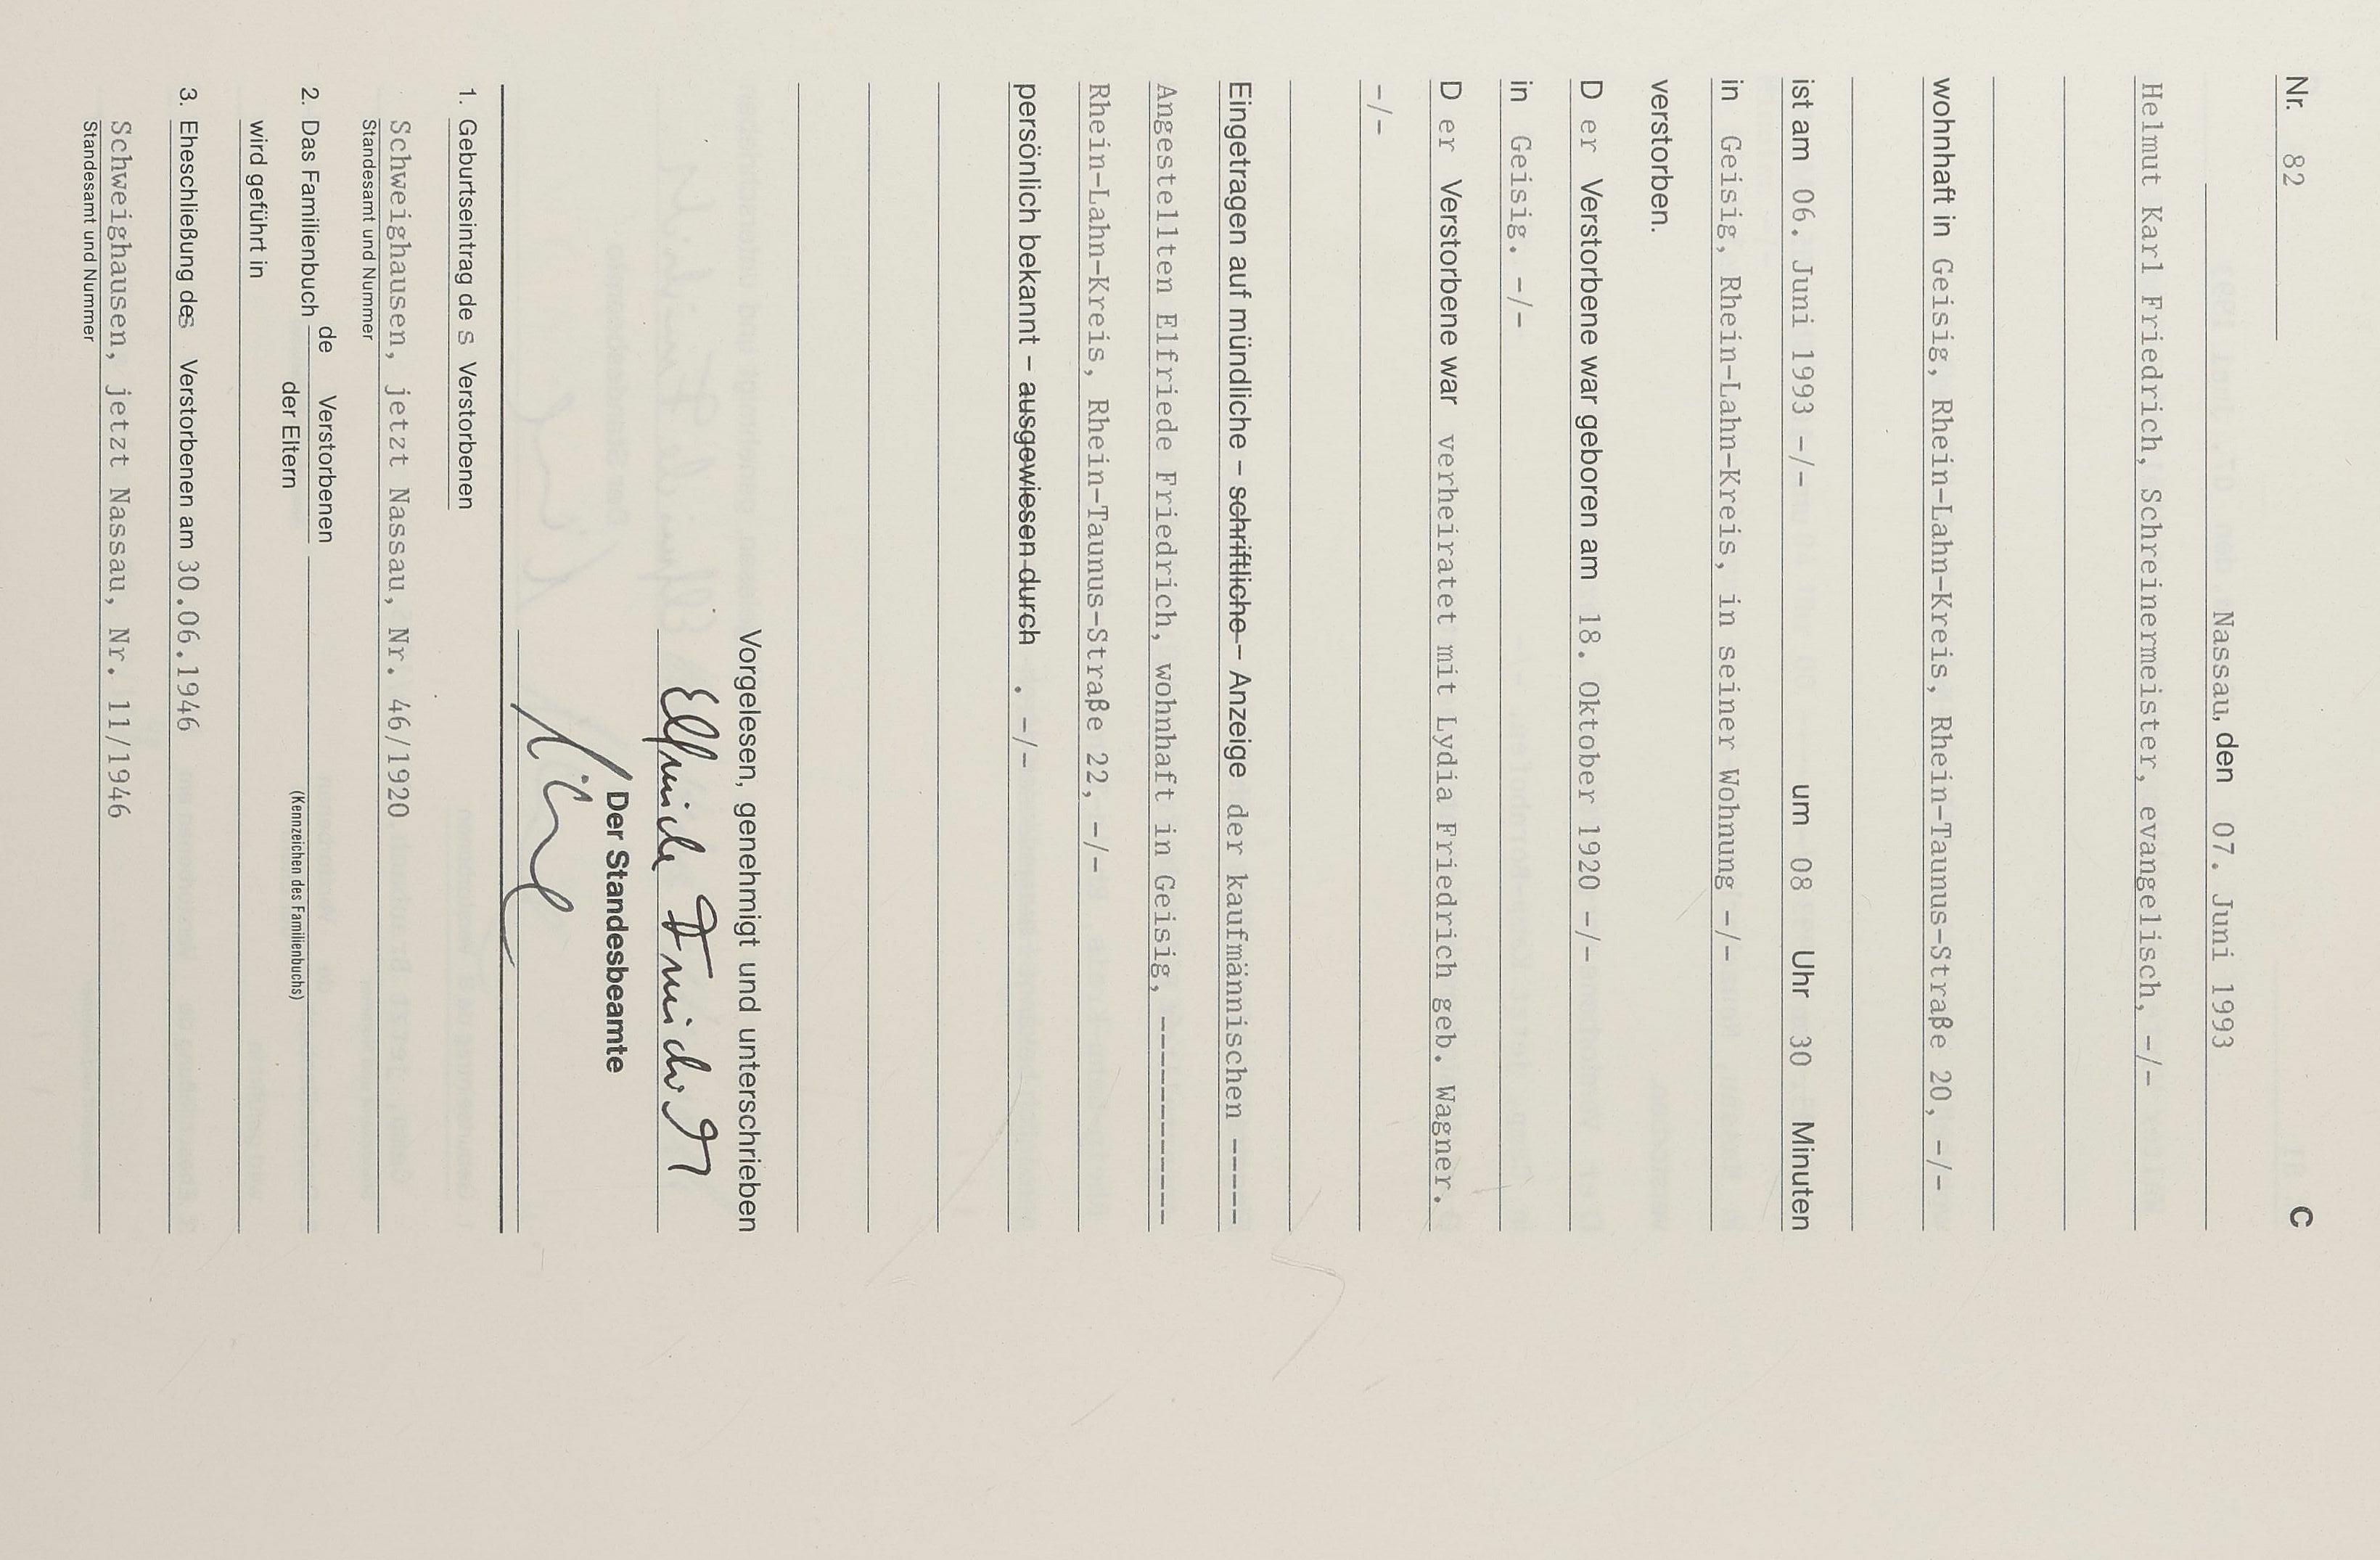 Nr. 82
C
Nassau, den 07. Juni 1993
Helmut Karl Friedrich, Schreinermeister, evangelisch, -/-
wohnhaft in Geisig, Rhein-Lahn-Kreis, Rhein-Taunus-Straße 20, -/-
ist am 06. Juni 1993 -/- um 08 Uhr 30 Minuten
in Geisig, Rhein-Lahn-Kreis, in seiner Wohnung -/-
verstorben.
D er Verstorbene war geboren am 18. Oktober 1920 -/-
in Geisig. -/-
D er Verstorbene war verheiratet mit Lydia Friedrich geb. Wagner.
-/-
Eingetragen auf mündliche – schriftliche – Anzeige der kaufmännischen -----
Angestellten Elfriede Friedrich, wohnhaft in Geisig, -----------
Rhein-Lahn-Kreis, Rhein-Taunus-Straße 22, -/-
persönlich bekannt – ausgewiesen durch . -/-
Vorgelesen, genehmigt und unterschrieben
Elfriede Friedrich
Der Standesbeamte
1. Geburtseintrag de s Verstorbenen
Schweighausen, jetzt Nassau, Nr. 46/1920
Standesamt und Nummer
2. Das Familienbuch de Verstorbenen
der Eltern
(Kennzeichen des Familienbuchs)
wird geführt in
3. Eheschließung des Verstorbenen am 30.06.1946
Schweighausen, jetzt Nassau, Nr. 11/1946
Standesamt und Nummer